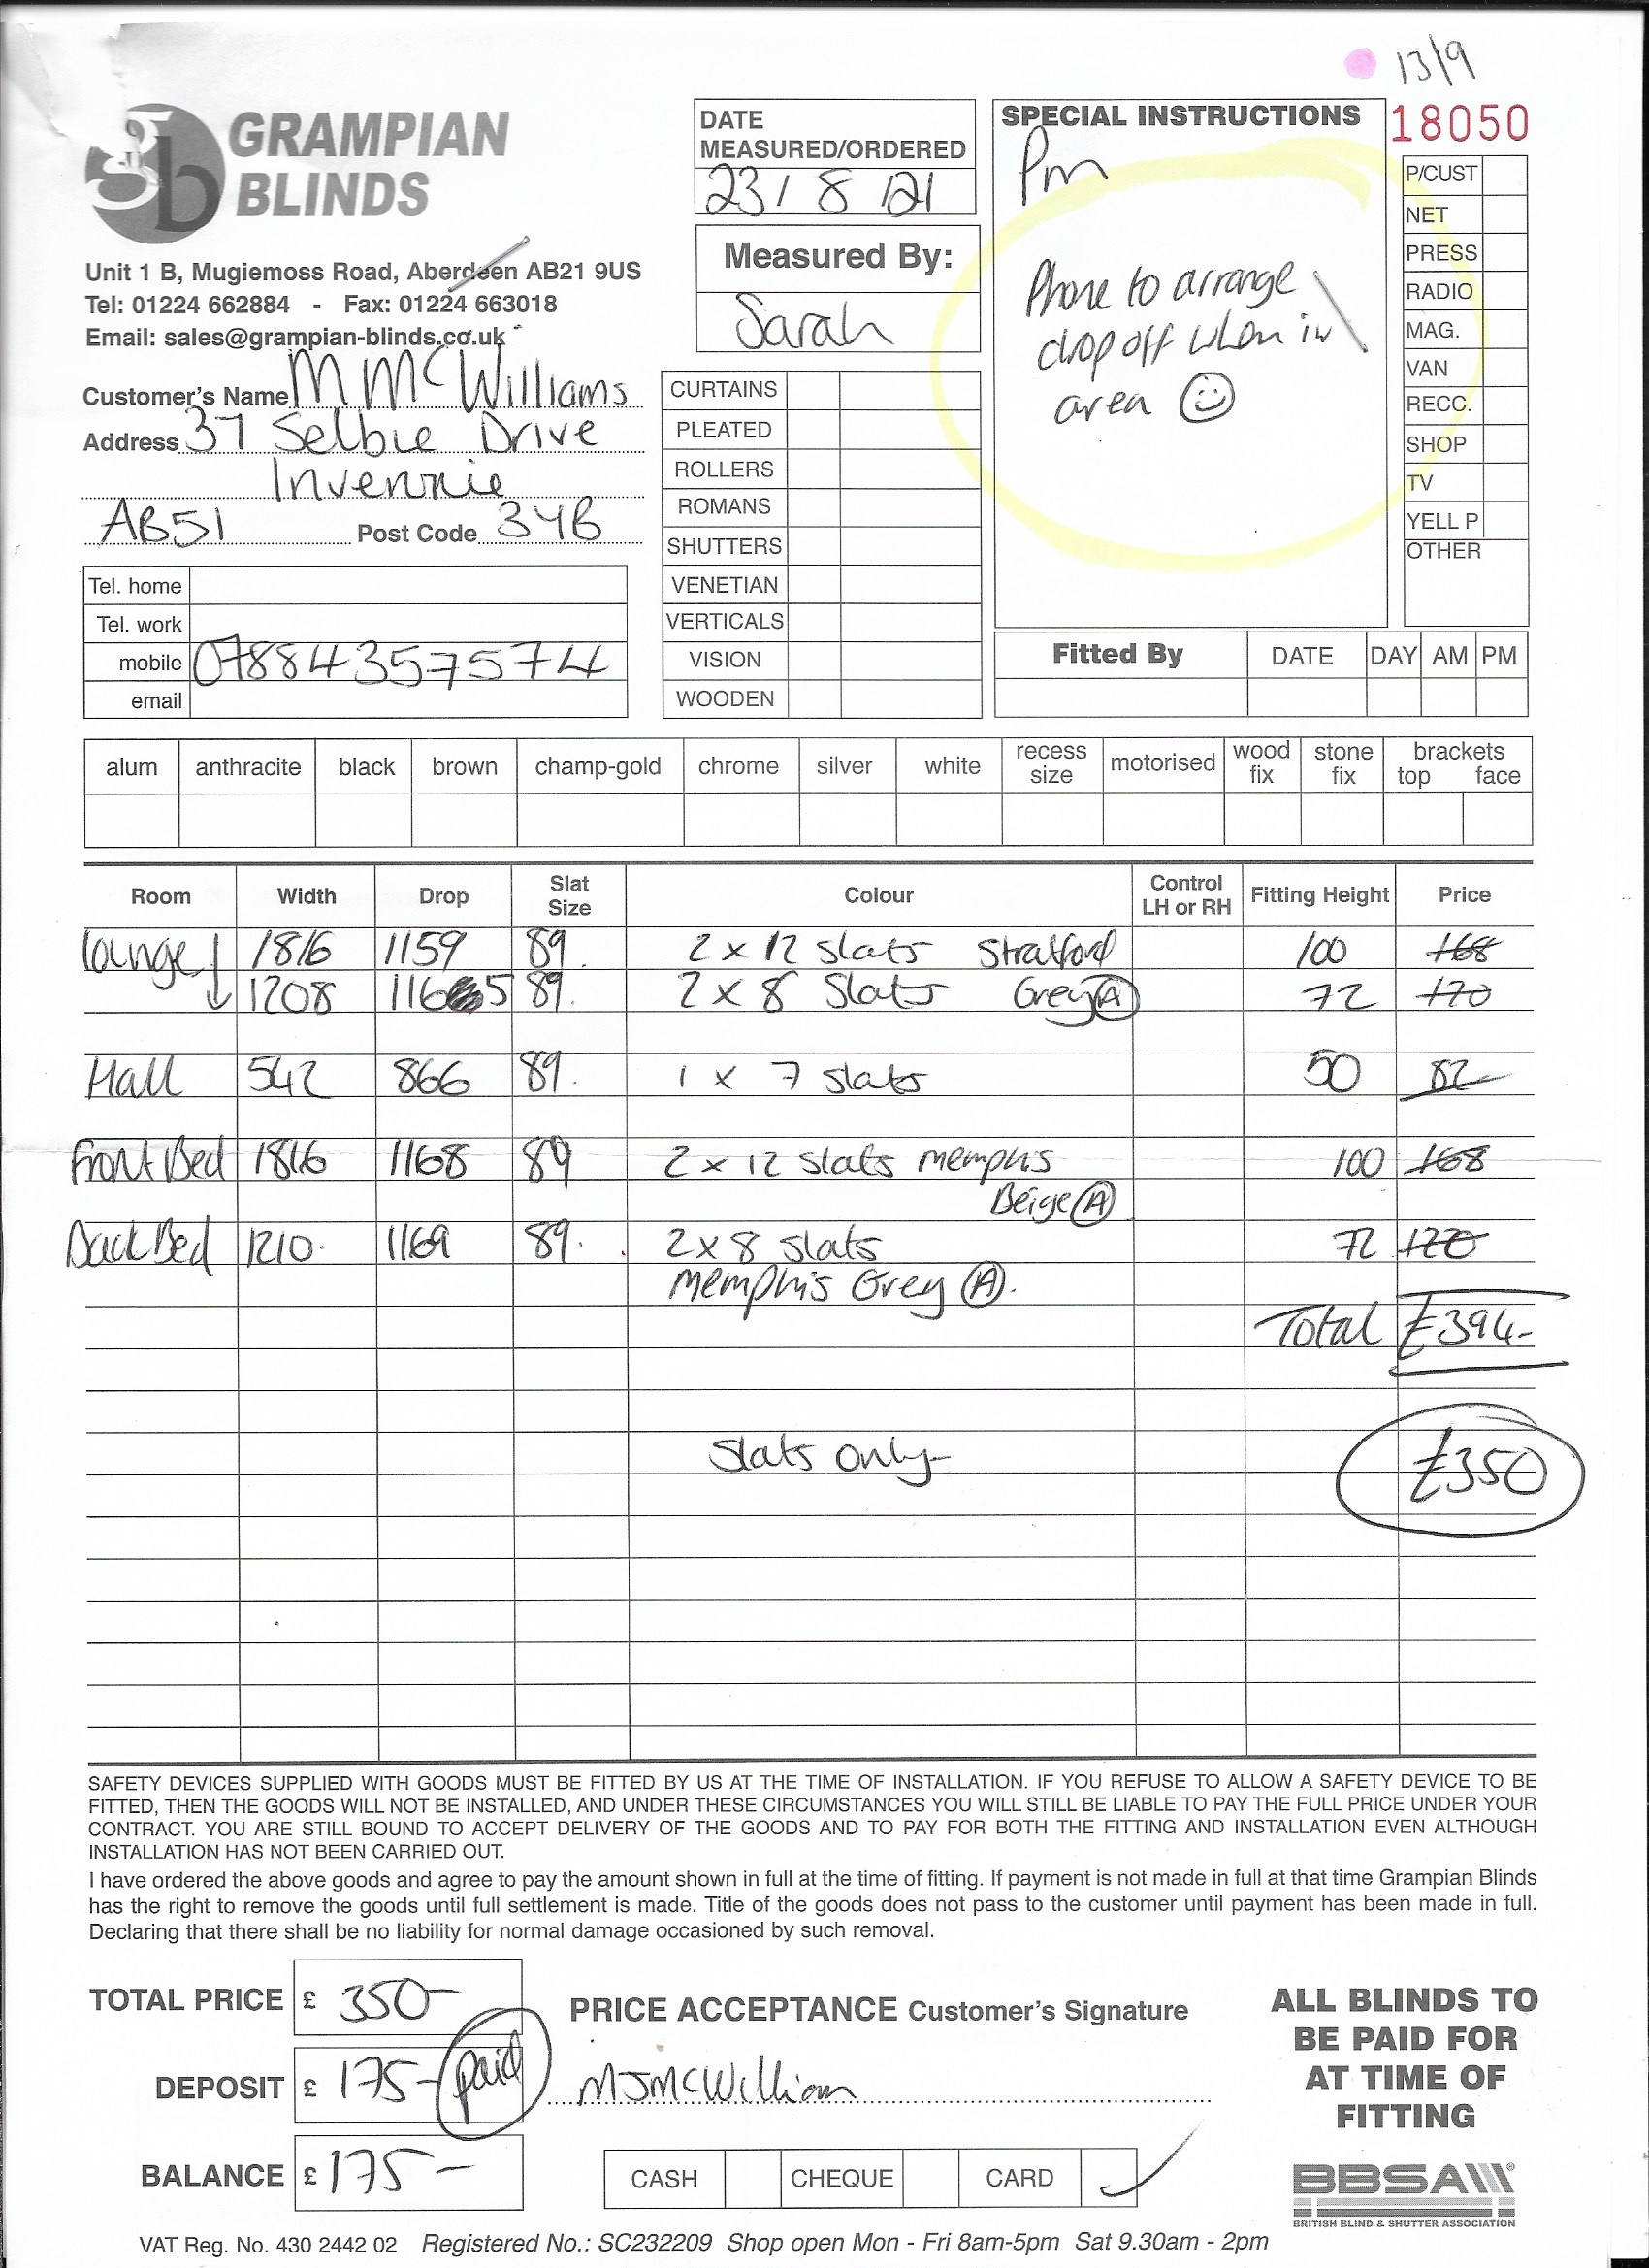 13/9
GRAMPIAN
BLINDS
Unit 1 B, Mugiemoss Road, Aberdeen AB21 9US
Tel: 01224 662884 - Fax: 01224 663018
Email: sales@grampian-blinds.co.uk
Customer's Name M McWilliams
Address 37 Selbie Drive
Inverurie
AB51 Post Code 3YB
Tel. home
Tel. work
mobile 078843575574
email
DATE
MEASURED/ORDERED
23/8/21
Measured By:
Sarah
CURTAINS
PLEATED
ROLLERS
ROMANS
SHUTTERS
VENETIAN
VERTICALS
VISION
WOODEN
SPECIAL INSTRUCTIONS
Pm
Phone to arrange
drop off when in
area
18050
P/CUST
NET
PRESS
RADIO
MAG.
VAN
RECC.
SHOP
TV
YELL P
OTHER
Fitted By DATE DAY AM PM
alum anthracite black brown champ-gold chrome silver white recess size motorised wood fix stone fix brackets top face
Room Width Drop Slat Size Colour Control LH or RH Fitting Height Price
Lounge 1816 1159 89. 2 x 12 slats Stratford 100 168
1208 1165 89. 2 x 8 Slats Grey A 72
Hall 542 866 89. 1 x 7 slats 50 82
Front Bed 1816 1168 89 2 x 12 slats memphis 100 168
Beige A
Back Bed 1210. 1169 89. 2 x 8 slats 72
memphis Grey A.
Total £394-
Slats only £350
SAFETY DEVICES SUPPLIED WITH GOODS MUST BE FITTED BY US AT THE TIME OF INSTALLATION. IF YOU REFUSE TO ALLOW A SAFETY DEVICE TO BE
FITTED, THEN THE GOODS WILL NOT BE INSTALLED, AND UNDER THESE CIRCUMSTANCES YOU WILL STILL BE LIABLE TO PAY THE FULL PRICE UNDER YOUR
CONTRACT. YOU ARE STILL BOUND TO ACCEPT DELIVERY OF THE GOODS AND TO PAY FOR BOTH THE FITTING AND INSTALLATION EVEN ALTHOUGH
INSTALLATION HAS NOT BEEN CARRIED OUT.
I have ordered the above goods and agree to pay the amount shown in full at the time of fitting. If payment is not made in full at that time Grampian Blinds
has the right to remove the goods until full settlement is made. Title of the goods does not pass to the customer until payment has been made in full.
Declaring that there shall be no liability for normal damage occasioned by such removal.
TOTAL PRICE £ 350-
DEPOSIT £ 175- paid
BALANCE £ 175-
PRICE ACCEPTANCE Customer's Signature
MJMcWilliam
CASH CHEQUE CARD
ALL BLINDS TO
BE PAID FOR
AT TIME OF
FITTING
BBSA
BRITISH BLIND & SHUTTER ASSOCIATION
VAT Reg. No. 430 2442 02 Registered No.: SC232209 Shop open Mon - Fri 8am-5pm Sat 9.30am - 2pm